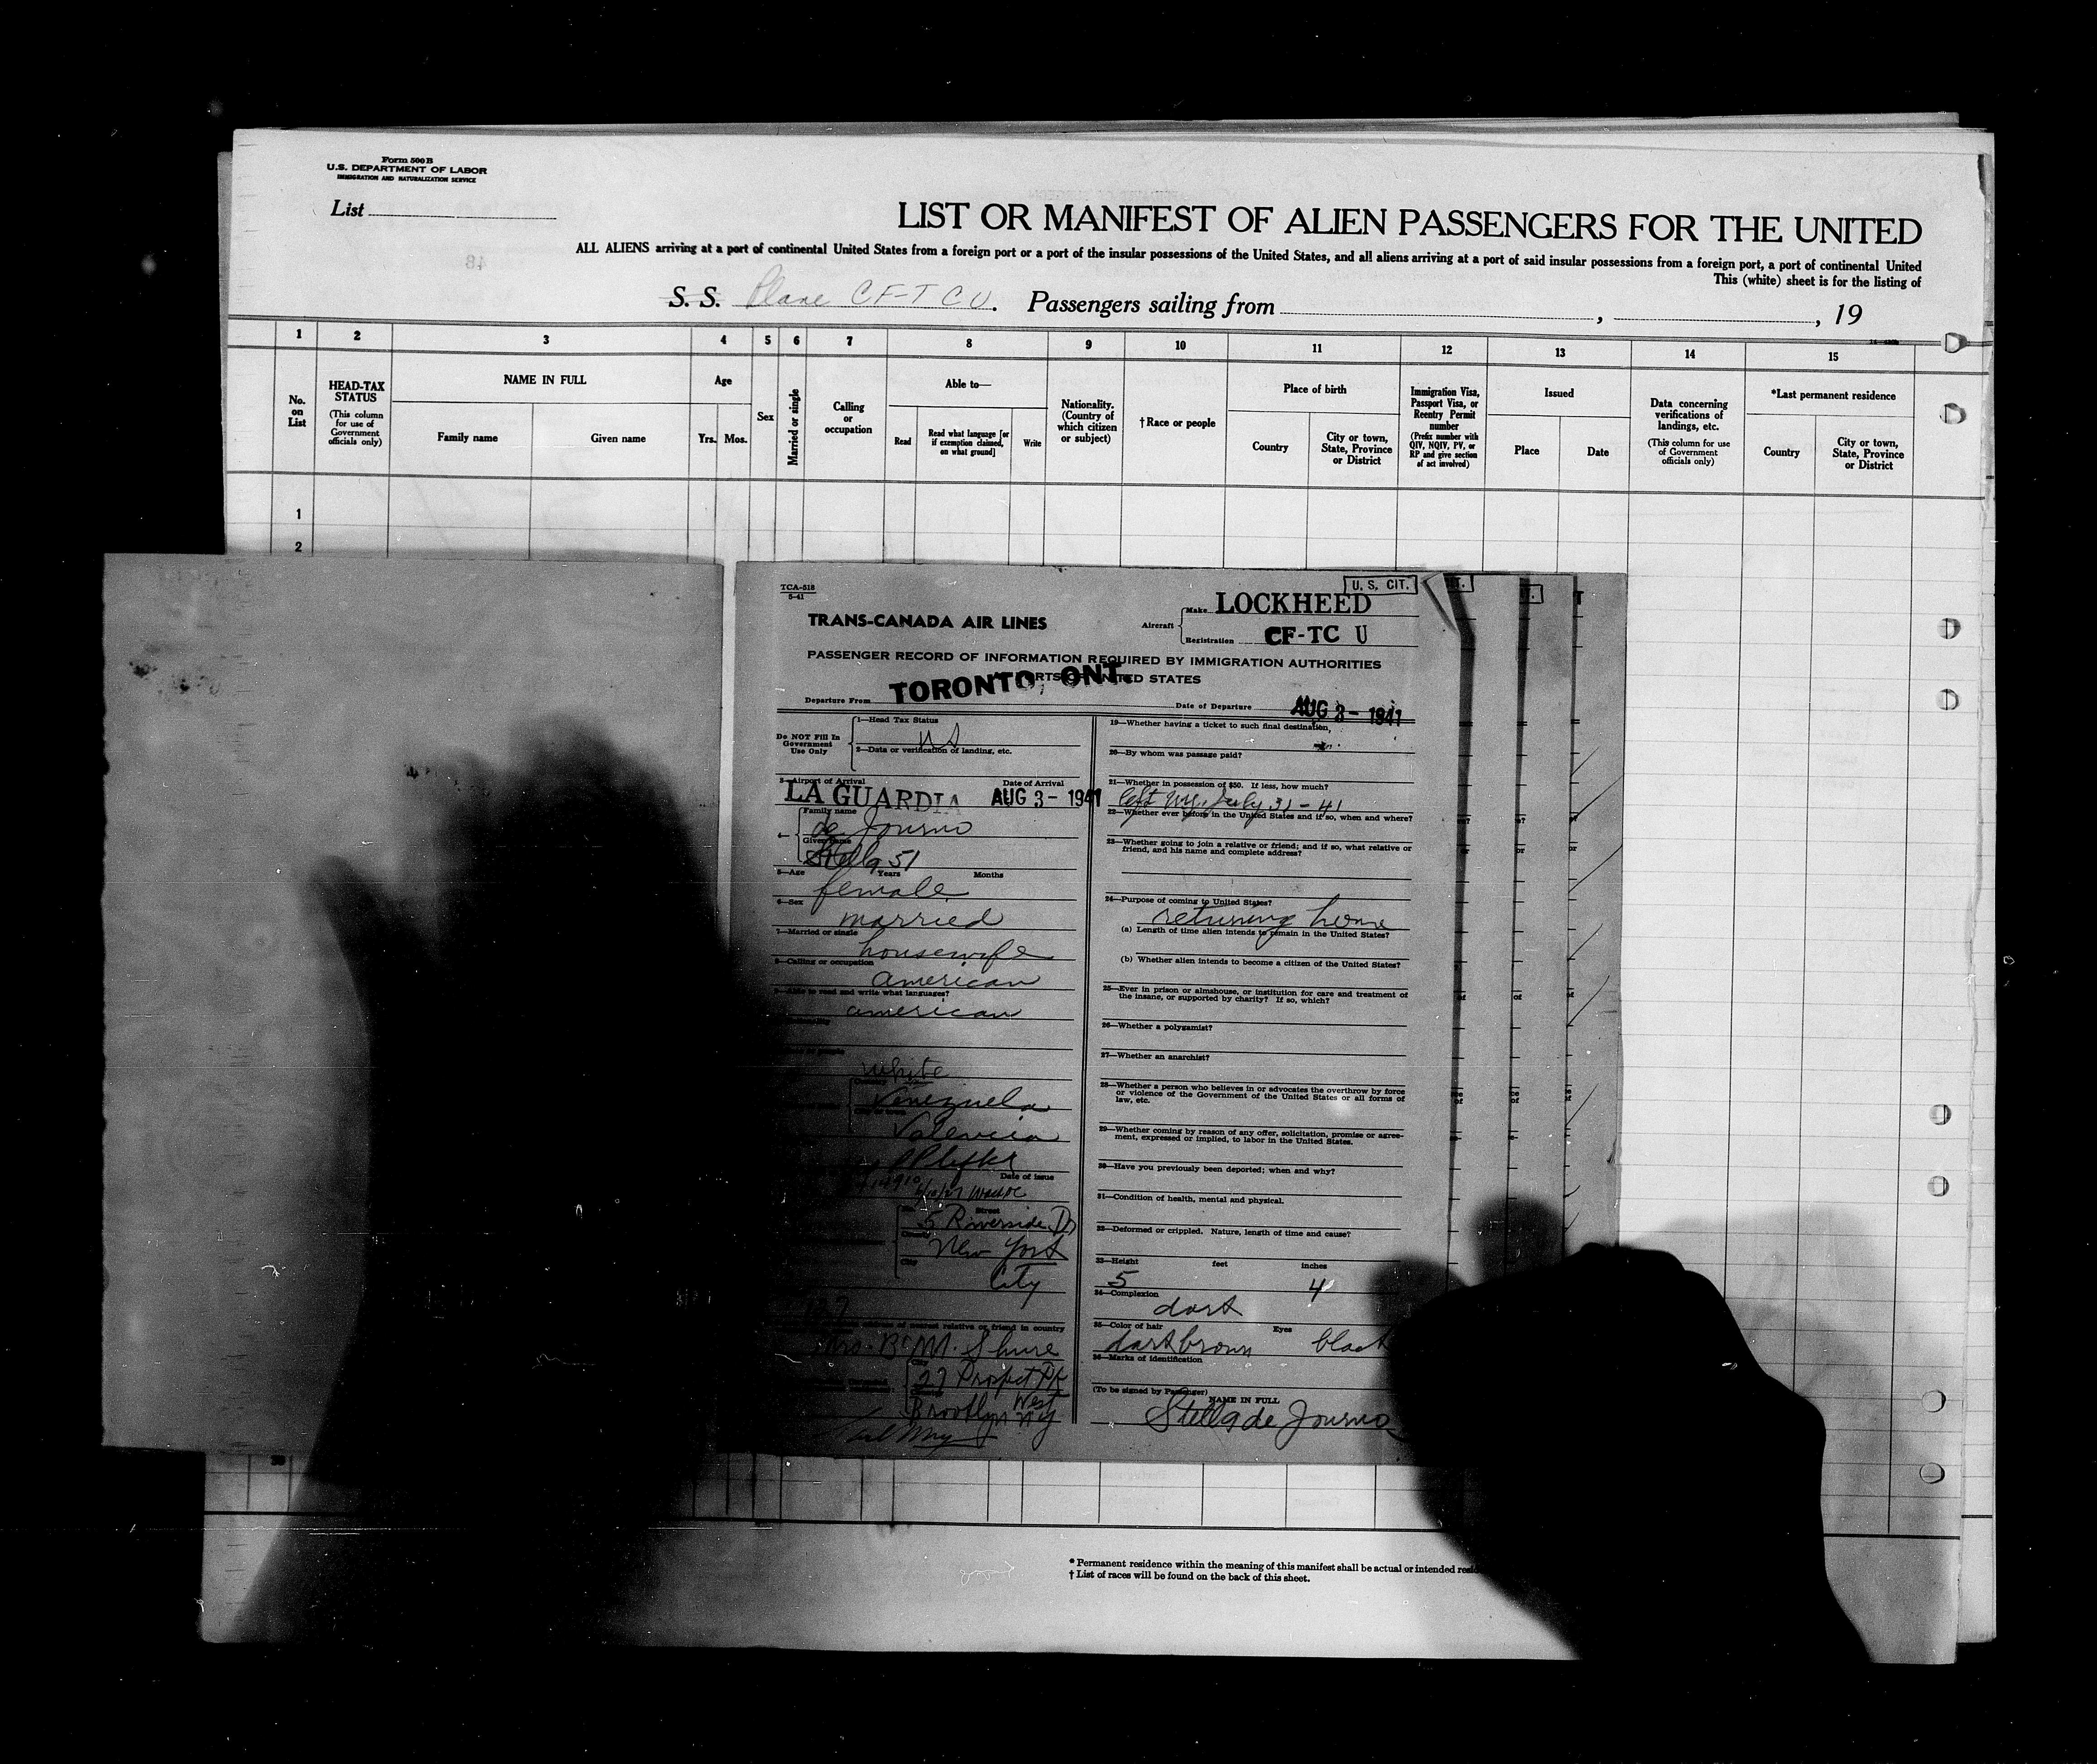 Form 500 B
U.S. DEPARTMENT OF LABOR
IMMIGRATION AND NATURALIZATION SERVICE
List
LIST OR MANIFEST OF ALIEN PASSENGERS FOR THE UNITED
ALL ALIENS arriving at a port of continental United States from a foreign port or a port of the insular possessions of the United States, and all aliens arriving at a port of said insular possessions from a foreign port, a port of continental United
This (white) sheet is for the listing of
S. S. Plane CF-TCU. Passengers sailing from , , 19
1 2 3 4 5 6 7 8 9 10 11 12 13 14 15
No. on List
HEAD-TAX STATUS
(This column for use of Government officials only)
NAME IN FULL
Family name
Given name
Age
Yrs. Mos.
Sex
Married or single
Calling or occupation
Able to—
Read
Read what language [or if exemption claimed, on what ground]
Write
Nationality. (Country of which citizen or subject)
†Race or people
Place of birth
Country
City or town, State, Province or District
Immigration Visa, Passport Visa, or Reentry Permit number
(Prefix number with QIV, NQIV, PV, or RP and give section of act involved)
Issued
Place
Date
Data concerning verifications of landings, etc.
(This column for use of Government officials only)
*Last permanent residence
Country
City or town, State, Province or District
1
2
TCA-518
5-41
U. S. CIT.
TRANS-CANADA AIR LINES
Aircraft
Make LOCKHEED
Registration CF-TC U
PASSENGER RECORD OF INFORMATION REQUIRED BY IMMIGRATION AUTHORITIES
PORTS UNITED STATES
Departure From TORONTO, ONT.
Date of Departure AUG 3- 1941
Do NOT Fill In Government Use Only
1—Head Tax Status
2—Data or verification of landing, etc.
3—Airport of Arrival
Date of Arrival
LA GUARDIA AUG 3- 1941
Family name
de Journo
Given name
Stella 51
5—Age Years Months
female
6—Sex
married
7—Married or single
housewife
8—Calling or occupation
american
9—Able to read and write what languages?
american
white
Venezuela
Valencia
Date of issue
Street
5 Riverside Dr
New York
City
City
address of nearest relative or friend in country
Mrs. B. M. Shure
City
27 Prospect Pk
West
Brooklyn NY
19—Whether having a ticket to such final destination,
20—By whom was passage paid?
21—Whether in possession of $50. If less, how much?
left NY. July 31-41
22—Whether ever before in the United States and if so, when and where?
23—Whether going to join a relative or friend; and if so, what relative or friend, and his name and complete address?
24—Purpose of coming to United States?
returning home
(a) Length of time alien intends to remain in the United States?
(b) Whether alien intends to become a citizen of the United States?
25—Ever in prison or almshouse, or institution for care and treatment of the insane, or supported by charity? If so, which?
26—Whether a polygamist?
27—Whether an anarchist?
28—Whether a person who believes in or advocates the overthrow by force or violence of the Government of the United States or all forms of law, etc.
29—Whether coming by reason of any offer, solicitation, promise or agreement, expressed or implied, to labor in the United States.
30—Have you previously been deported; when and why?
31—Condition of health, mental and physical.
32—Deformed or crippled. Nature, length of time and cause?
33—Height feet inches
5 4
34—Complexion
dark
35—Color of hair Eyes
dark brown black
36—Marks of identification
(To be signed by Passenger)
NAME IN FULL
Stella de Journo
* Permanent residence within the meaning of this manifest shall be actual or intended
† List of races will be found on the back of this sheet.